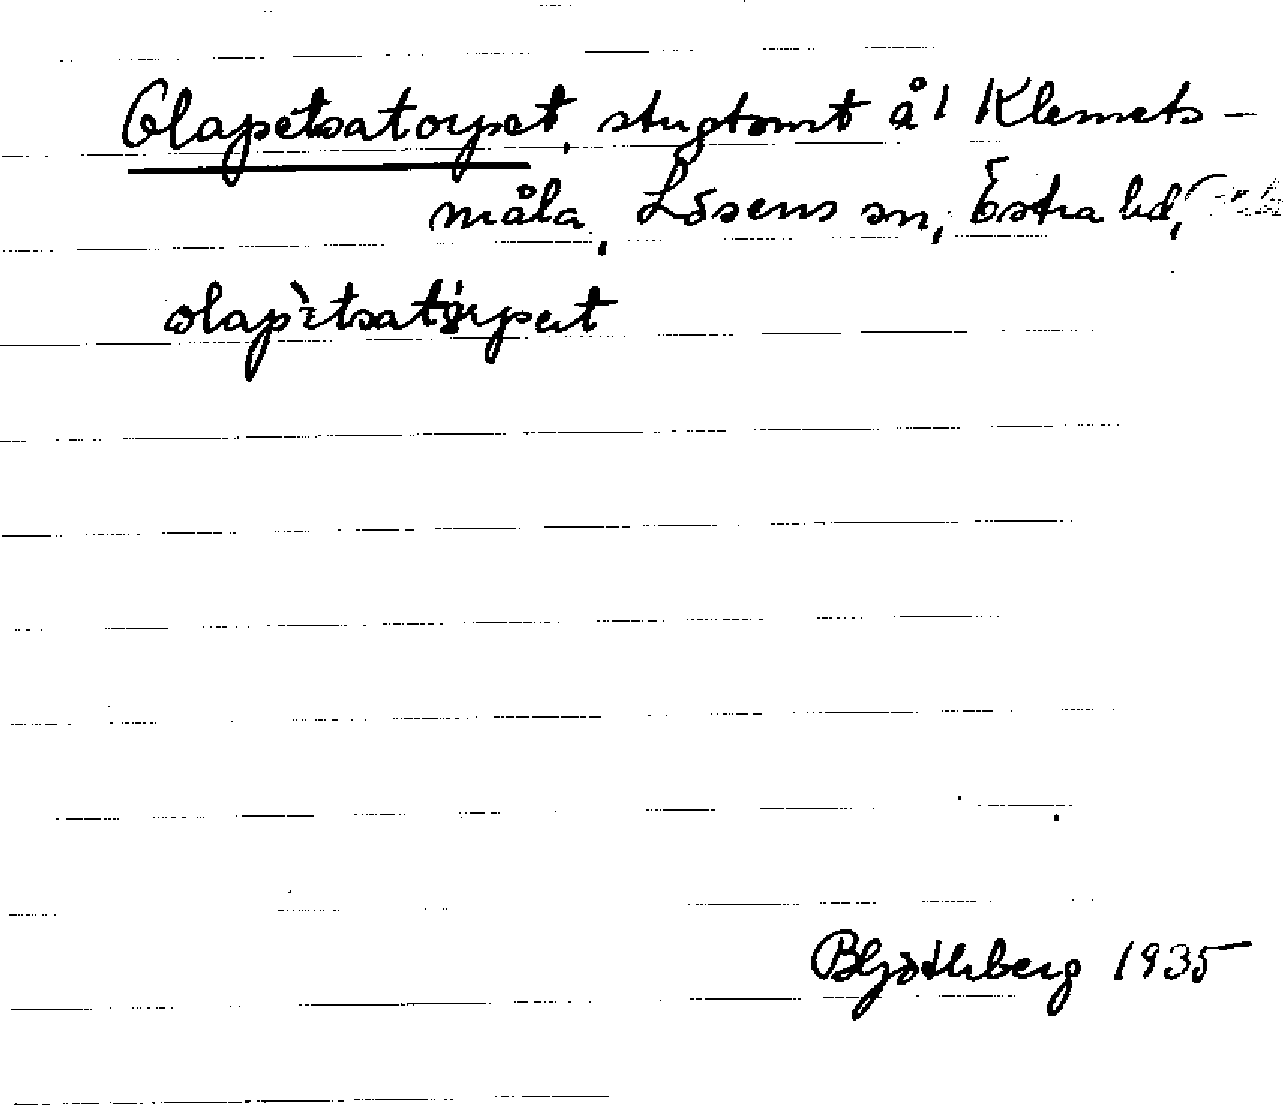 Olapetsatorpet, stugtomt å 1 Klemets-
måla, Lösens sn, Östra hd,
olapètsatòrpet
Göthberg 1935